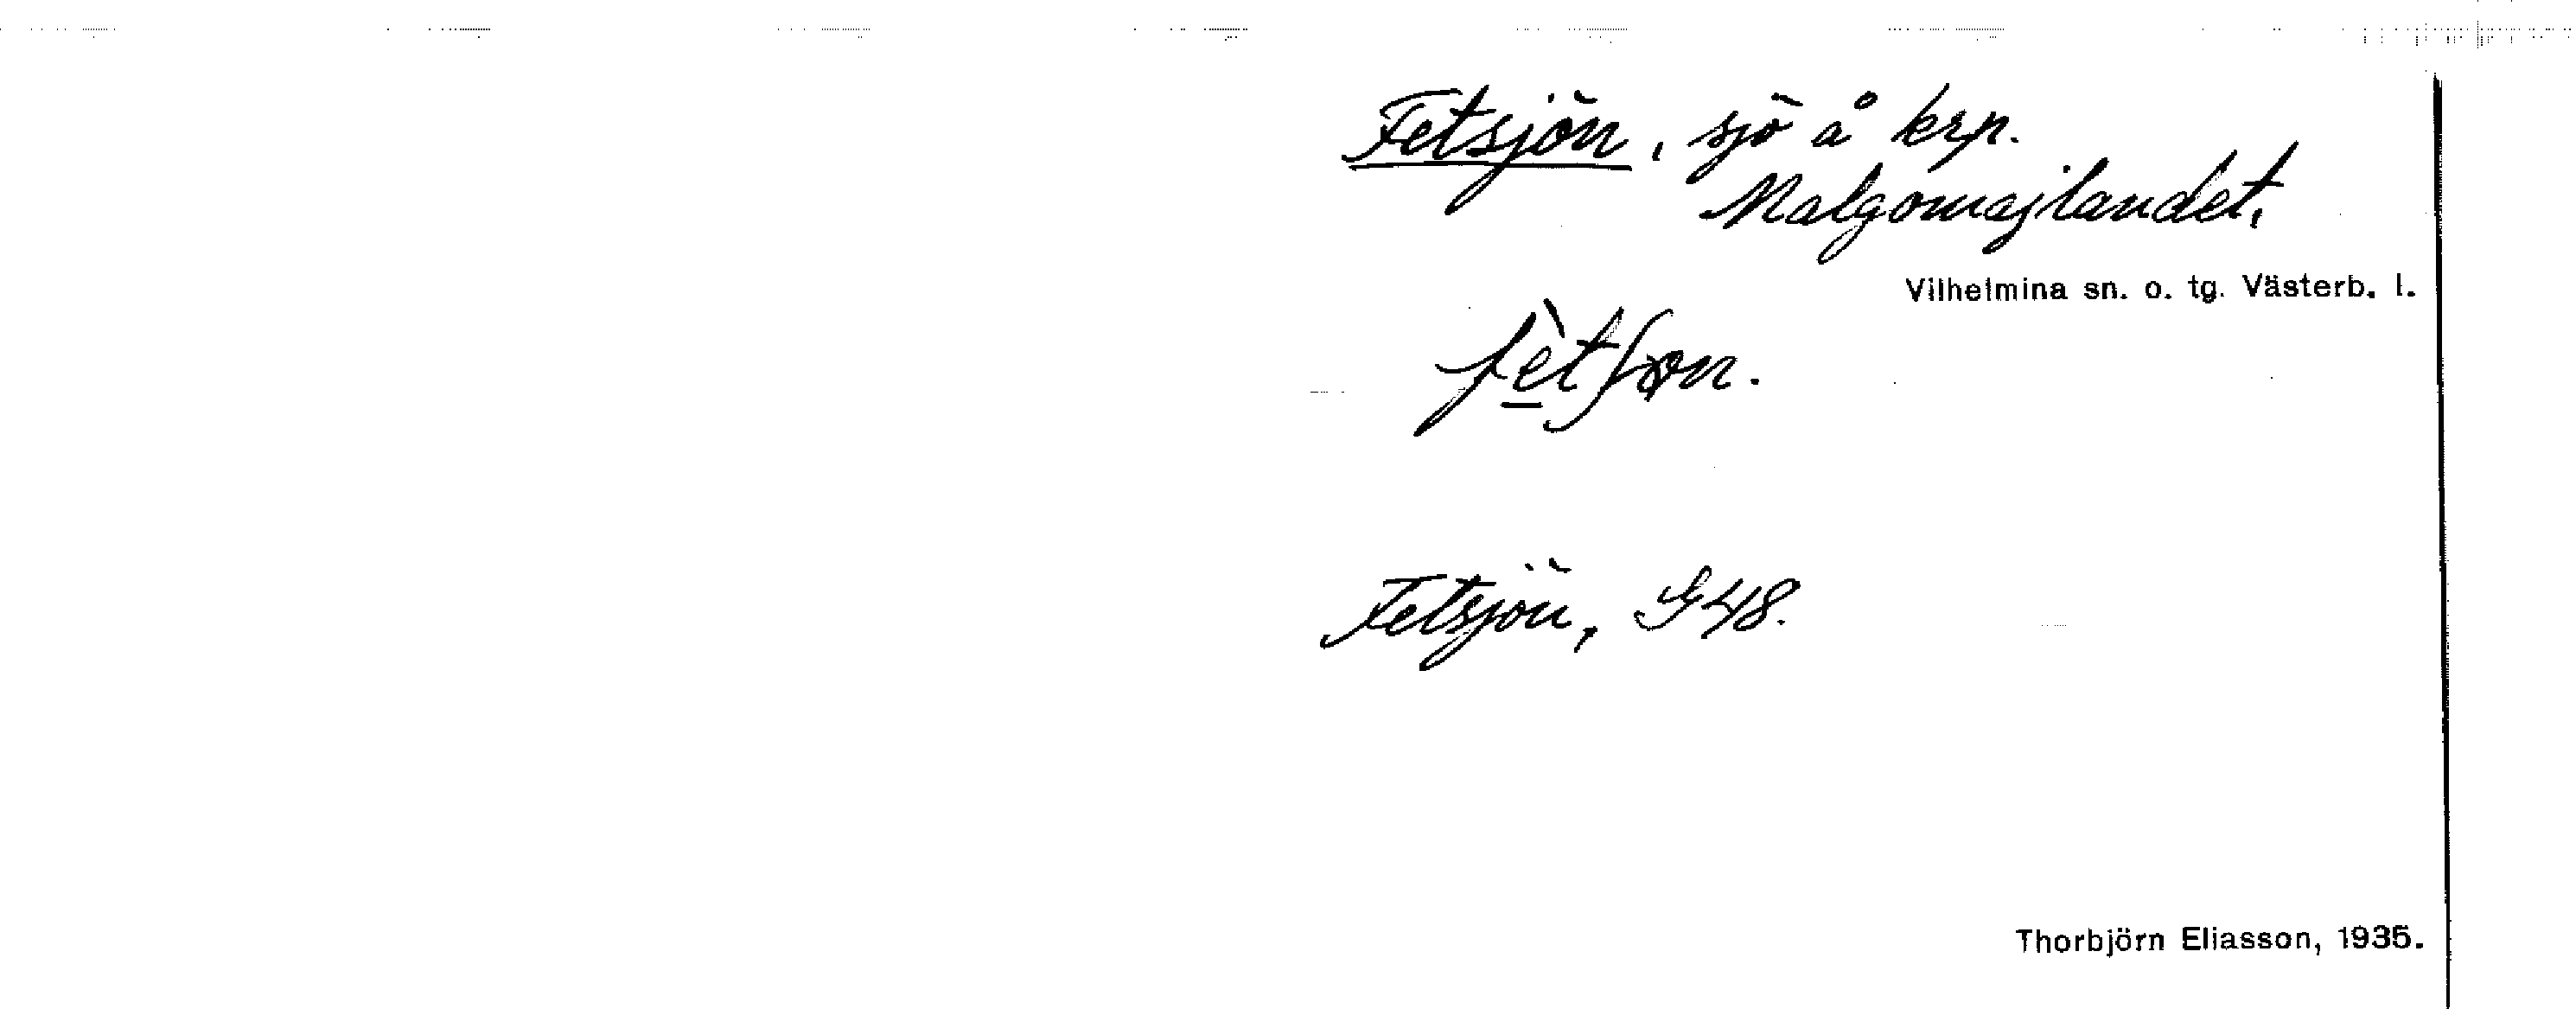 Fetsjön, sjö å krp.
Malgomajlandet,
Vilhelmina sn. o. tg. Västerb. l.
fèt̲ʃøn.
Fetsjön, G48.
Thorbjörn Eliasson, 1935.